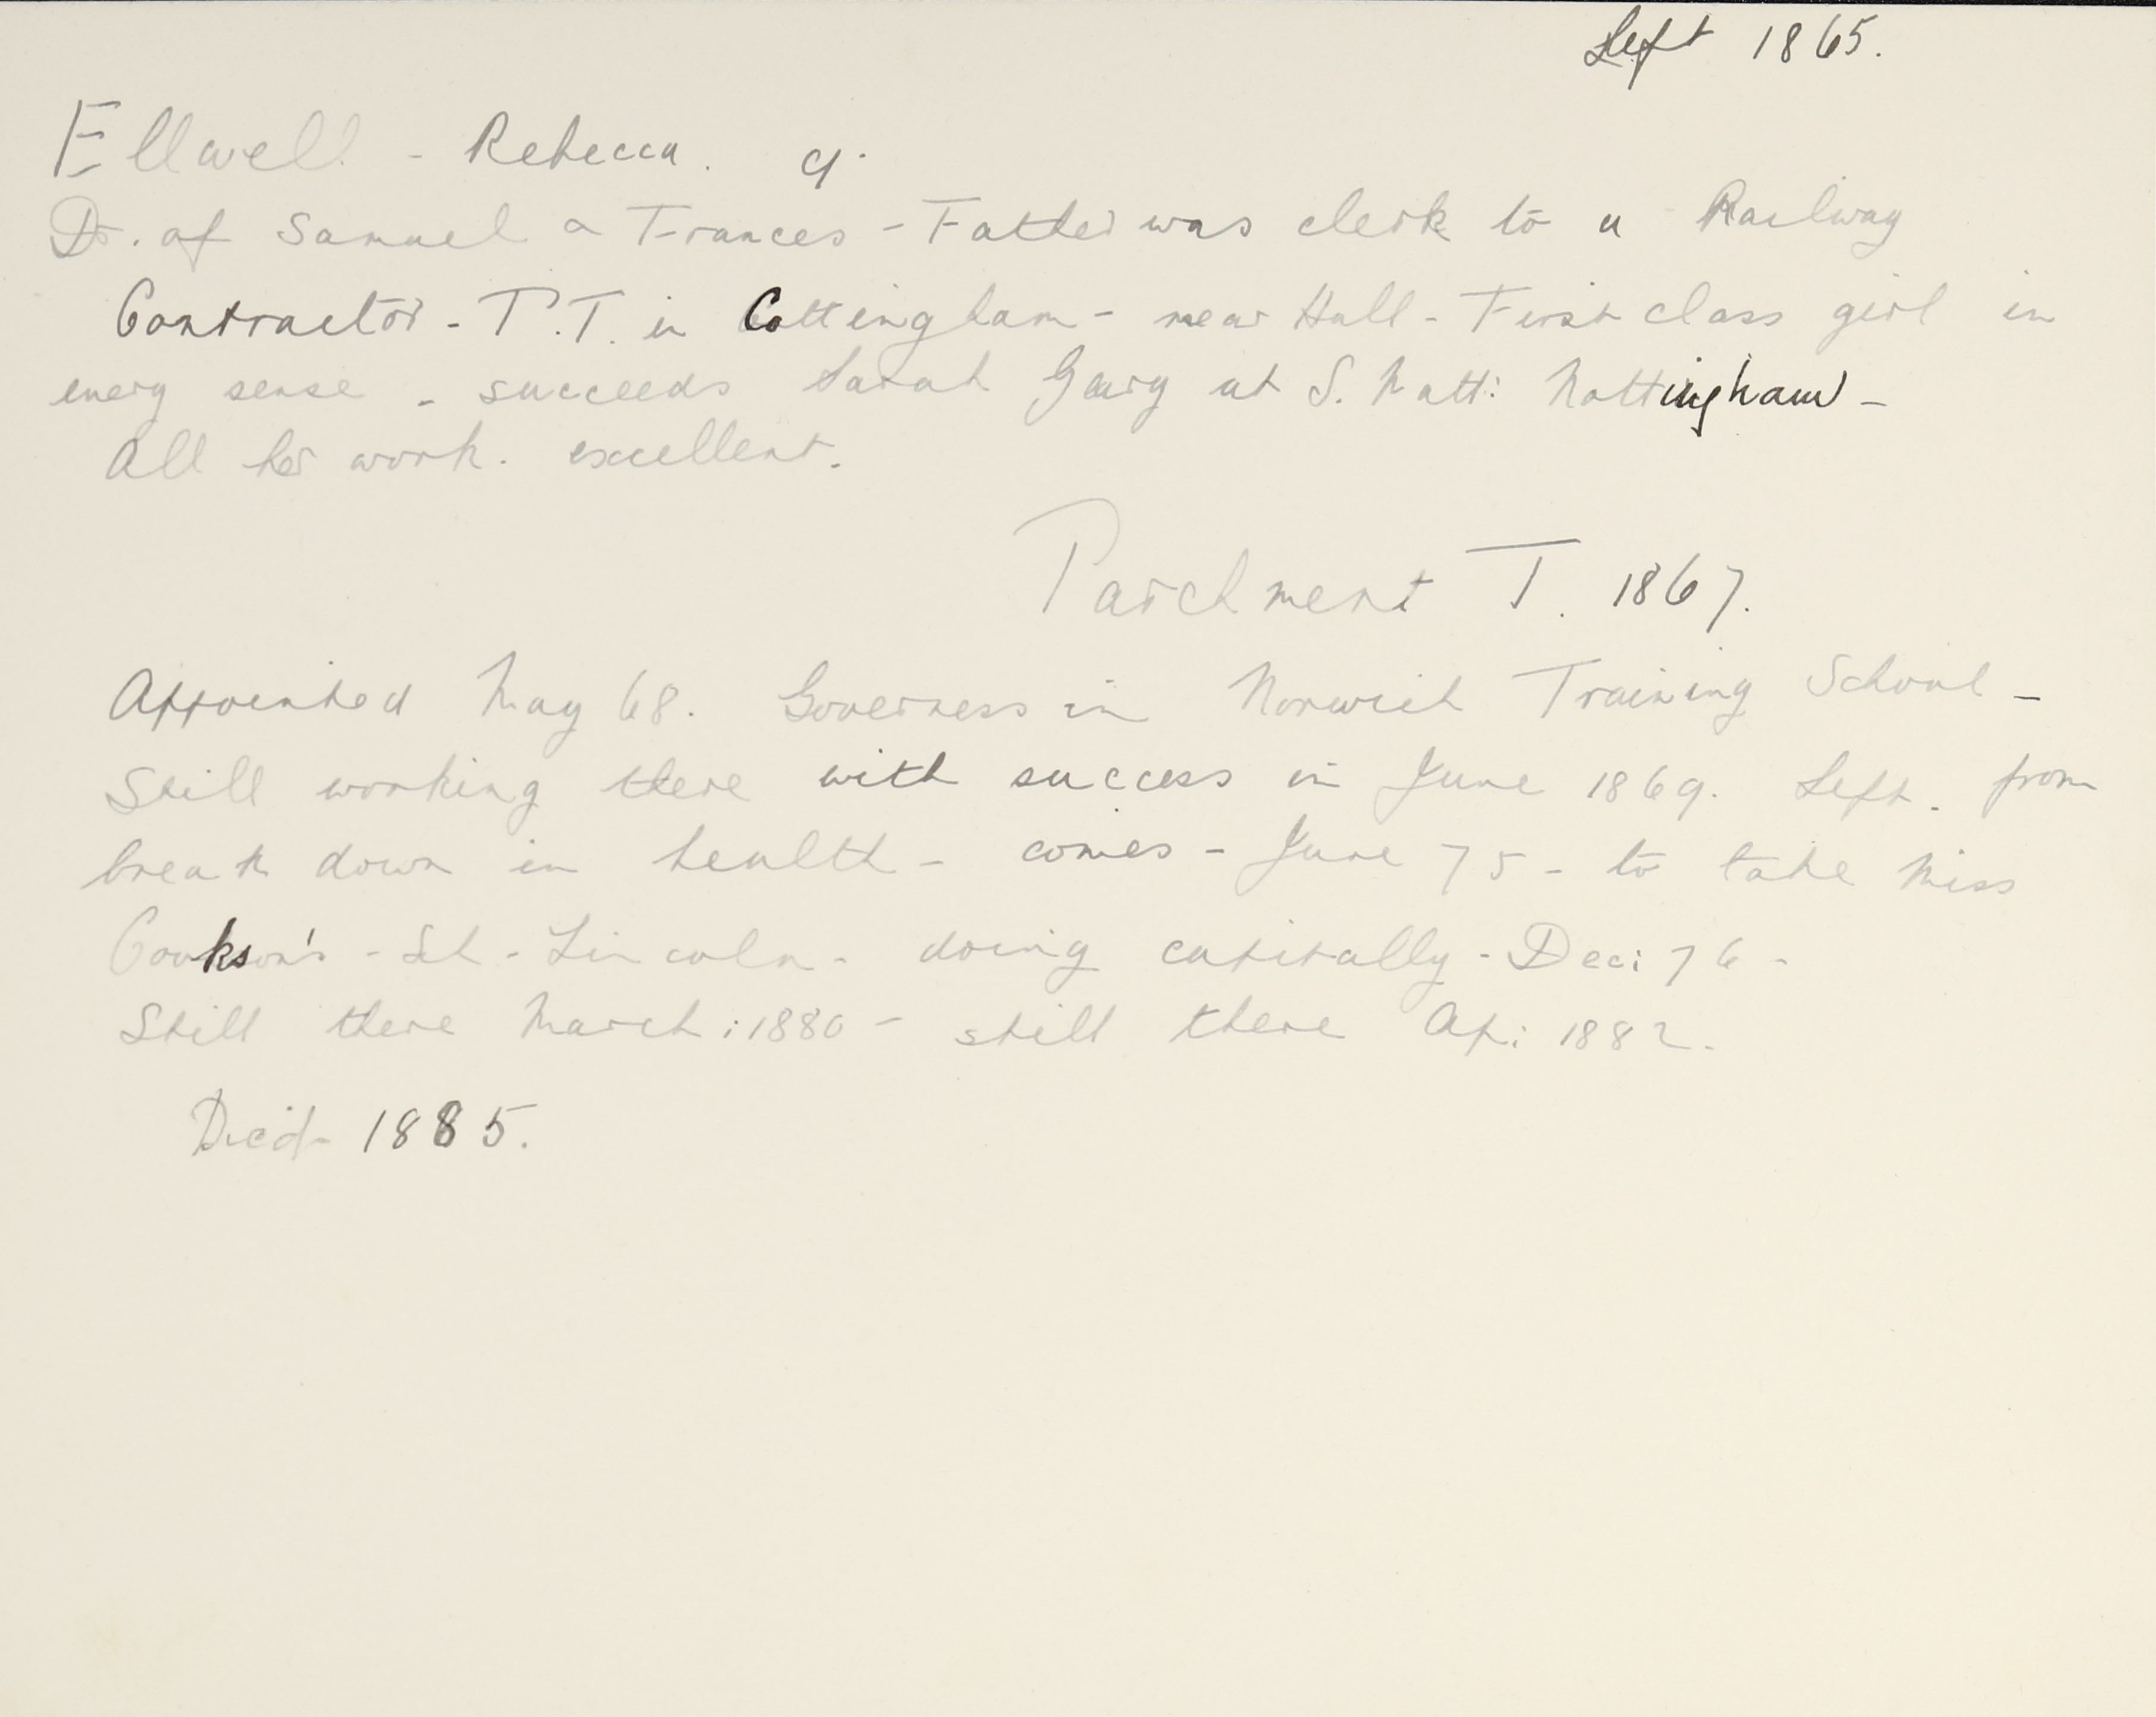 Left 1865.
Ellwell - Rebecca. q.
Dr. of Samuel & Frances - Father was clerk to a Railway
Contractor - P.T. in Cottingham - near Hull - First class girl in
every sense - succeeds Sarah Geary at S. Matt: Nottingham -
All her work. excellent.
Parchment T. 1867.
Appointed May 68. Governess in Norwich Training School -
Still working there with success in June 1869. Left. from
break down in health - comes - June 75 - to take Miss
Cookson's - Sch - Lincoln - doing capitally - Dec: 76 -
Still there March: 1880 - still there Ap: 1882.
Died - 1885.